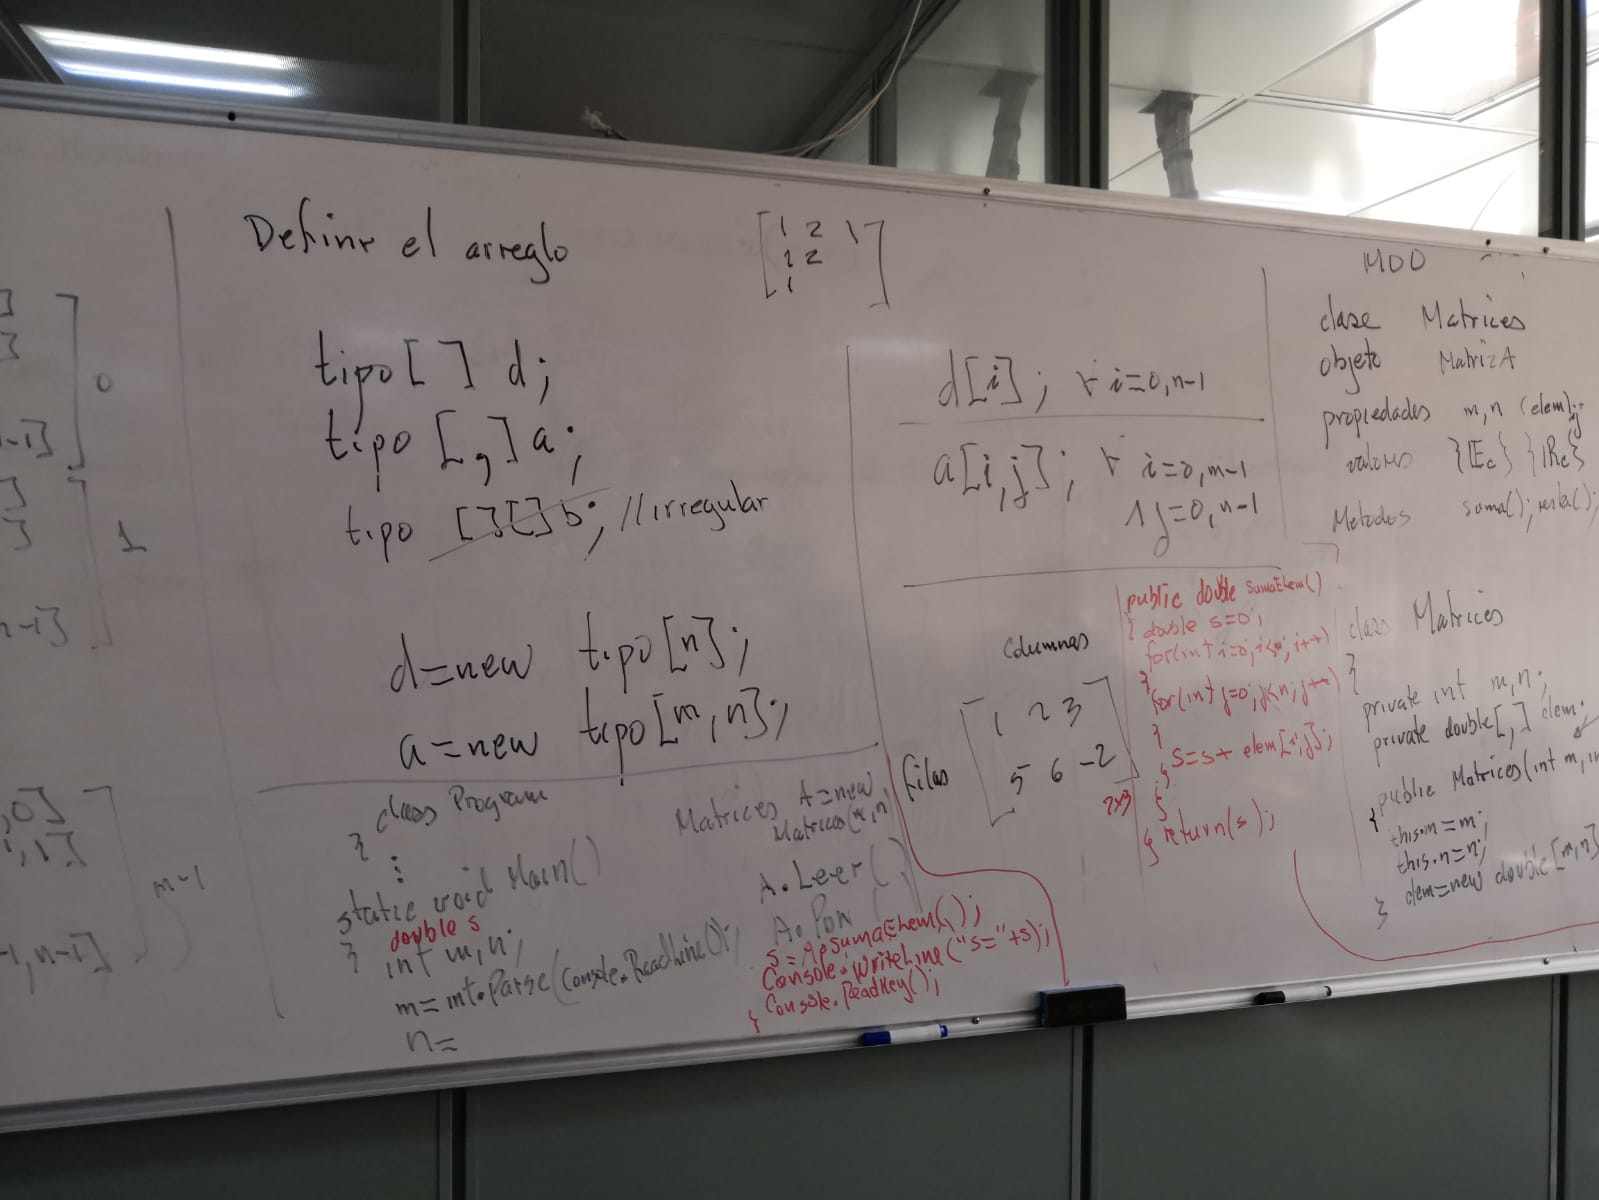 ]
]
0
n-1]
]
]
1
n-1]
,0]
,1]
m-1
-1,n-1]
Definir el arreglo
[1 2 1]
1 2
1
tipo[ ] d;
tipo [,] a;
tipo [][] b; //irregular
d=new tipo[n];
a=new tipo[m,n];
d[i]; ∀ i=0,n-1
a[i,j]; ∀ i=0,m-1
∧ j=0,n-1
Columnas
Filas
1 2 3
5 6 -2
2x3
class Program
{
⋮
static void Main()
{
double s
int m,n;
m=int.Parse(Console.ReadLine());
n=
Matrices A=new
Matrices(m,n
A.Leer()
A.
s=A.sumaElem();
Console.WriteLine("s="+s);
Console.ReadKey();
}
public double sumaElem()
{ double s=0;
for(int i=0;i<m;i++)
{
for(int j=0;j<n;j++)
{
s=s+ elem[i,j];
}
}
} return(s);
MOO
clase Matrices
objeto MatrizA
propiedades m,n (elem)ij
valores {Ec} {Rc}
Metodos suma();resta();
class Matrices
{
private int m,n;
private double[,] elem;
public Matrices(int m,in
{
this.m=m;
this.n=n;
elem=new double[m,n]
}